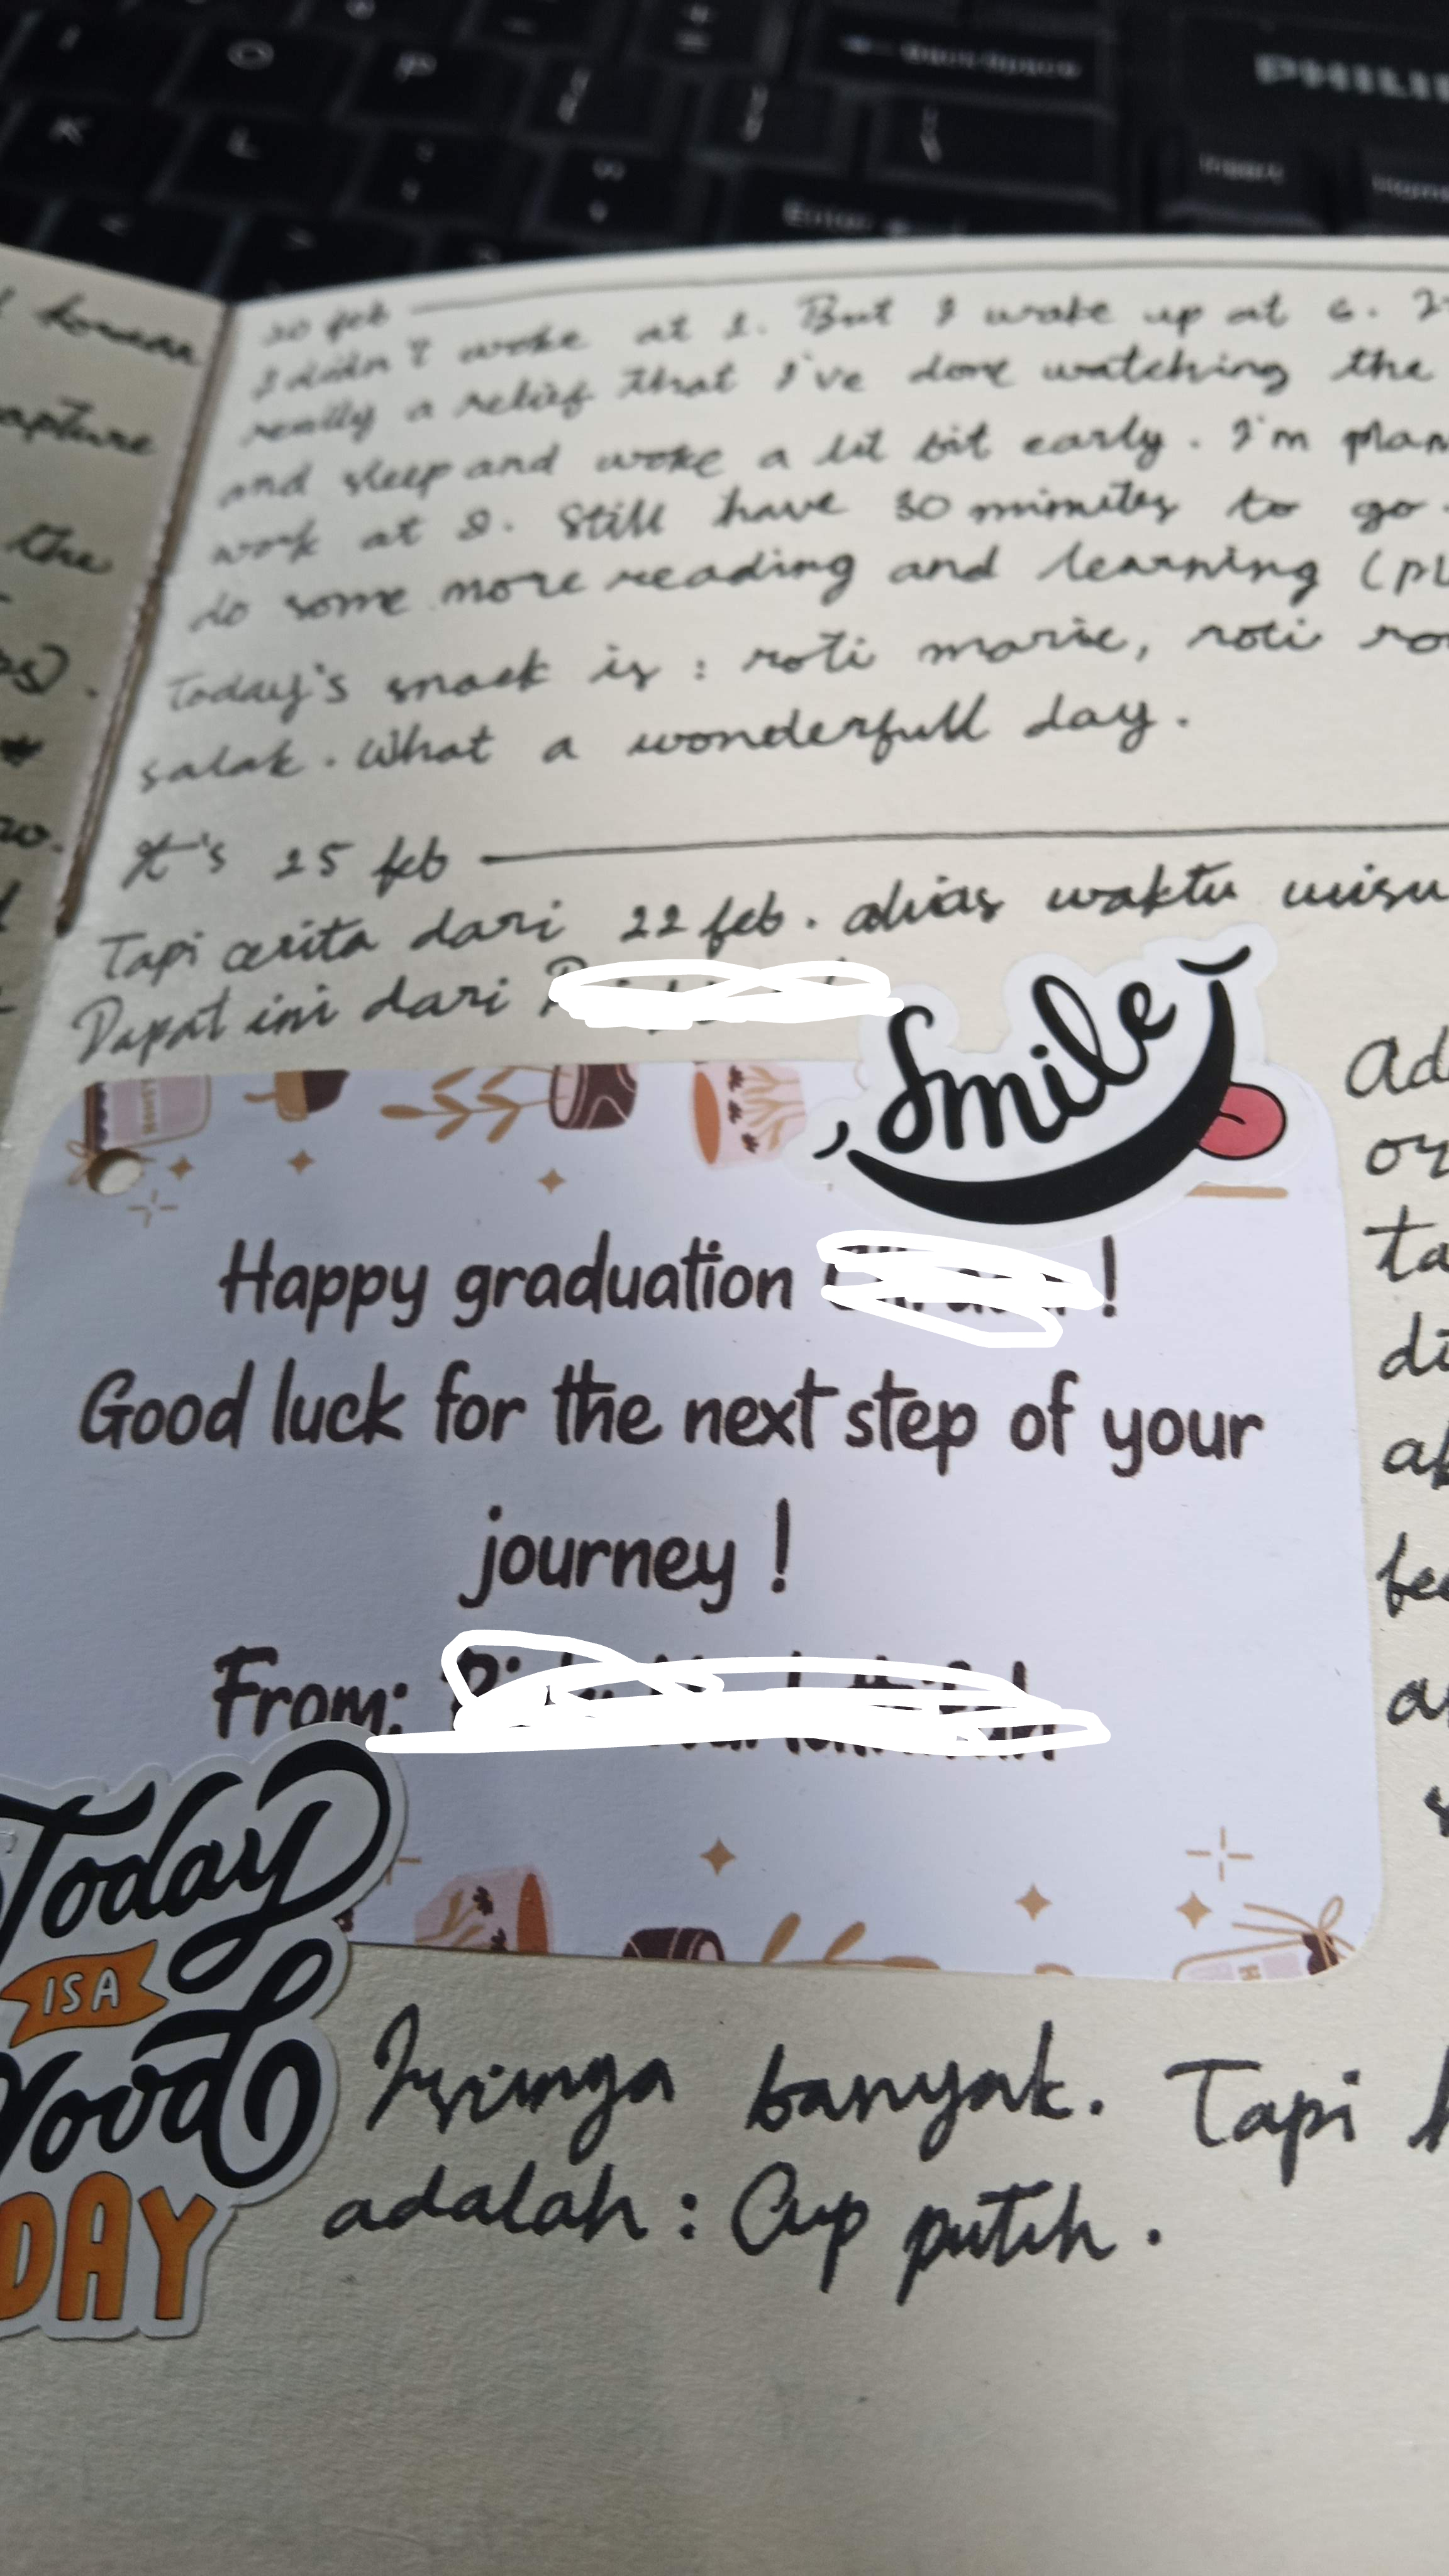 I
O
P
Back Space
PHILI
K
L
Insert
Home
Enter
korean
apture
the
20 feb
I didn't woke at 1. But I wake up at 6.
really a relief that I've done watching the
and sleep and woke a lit bit early. I'm plan
work at 8. Still have 30 minutes to go
do some more reading and learning (pl
Today's snack is : roti marie, roti ro
salak. What a wonderfull day.
It's 25 feb
Tapi cerita dari 22 feb. alias waktu wisu
Dapat ini dari
Smile
Happy graduation !
Good luck for the next step of your
journey !
From:
Ad
or
ta
di
ak
be
ap
s
Today
IS A
Good
DAY
Isinya banyak. Tapi
adalah : Cup putih.